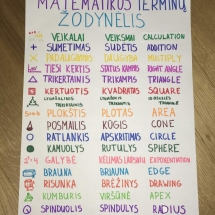 MATEMATIKOS TERMINŲ
ŽODYNĖLIS
VEIKALAI VEIKSMAI CALCULATION
+ SUMETIMAS SUDĖTIS ADDITION
× PADAUGINIMAS DAUGYBA MULTIPLY
TIESI KERTIS STATUS KAMPAS RIGHT ANGLE
TRIKERTAINIS TRIKAMPIS TRIANGLE
KERTUOTIS KVADRATAS SQUARE
PLOKŠTIS PLOTAS AREA
POSMAILIS KŪGIS CONE
RATLANKIS APSKRITIMAS CIRCLE
KAMUOLYS RUTULYS SPHERE
GALYBĖ KĖLIMAS LAIPSNIU EXPONENTIATION
BRAUNA BRIAUNA EDGE
RISUNKA BRĖŽINYS DRAWING
KUMBURIS VIRŠŪNĖ APEX
SPINDUOLIS SPINDULYS RADIUS